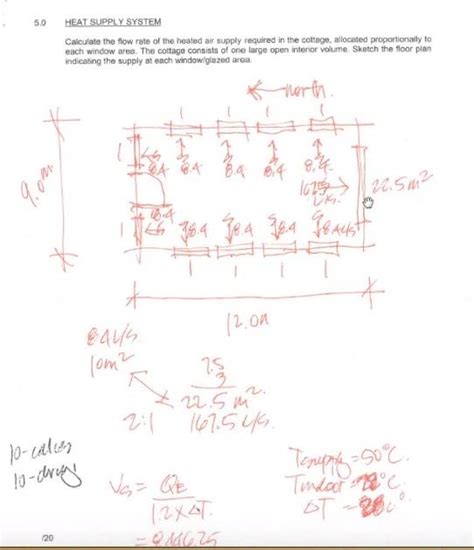 5.0 HEAT SUPPLY SYSTEM
Calculate the flow rate of the heated air supply required in the cottage, allocated proportionally to
each window area. The cottage consists of one large open interior volume. Sketch the floor plan
indicating the supply at each window/glazed area.
north.
1 1 1 1
1
8.4 8.4 8.4 8.4 8.4
9.0m
22.5m²
L/s.
8.4
1 8.4 8.4 8.4 L/s
1 1 1 1
12.0m
84 L/s
10m²
7.5
3
22.5 m².
2:1 167.5 L/s.
10-calcs
Tsupply = 50°C.
Vs = QE
1.2×ΔT.
ΔT =
/20